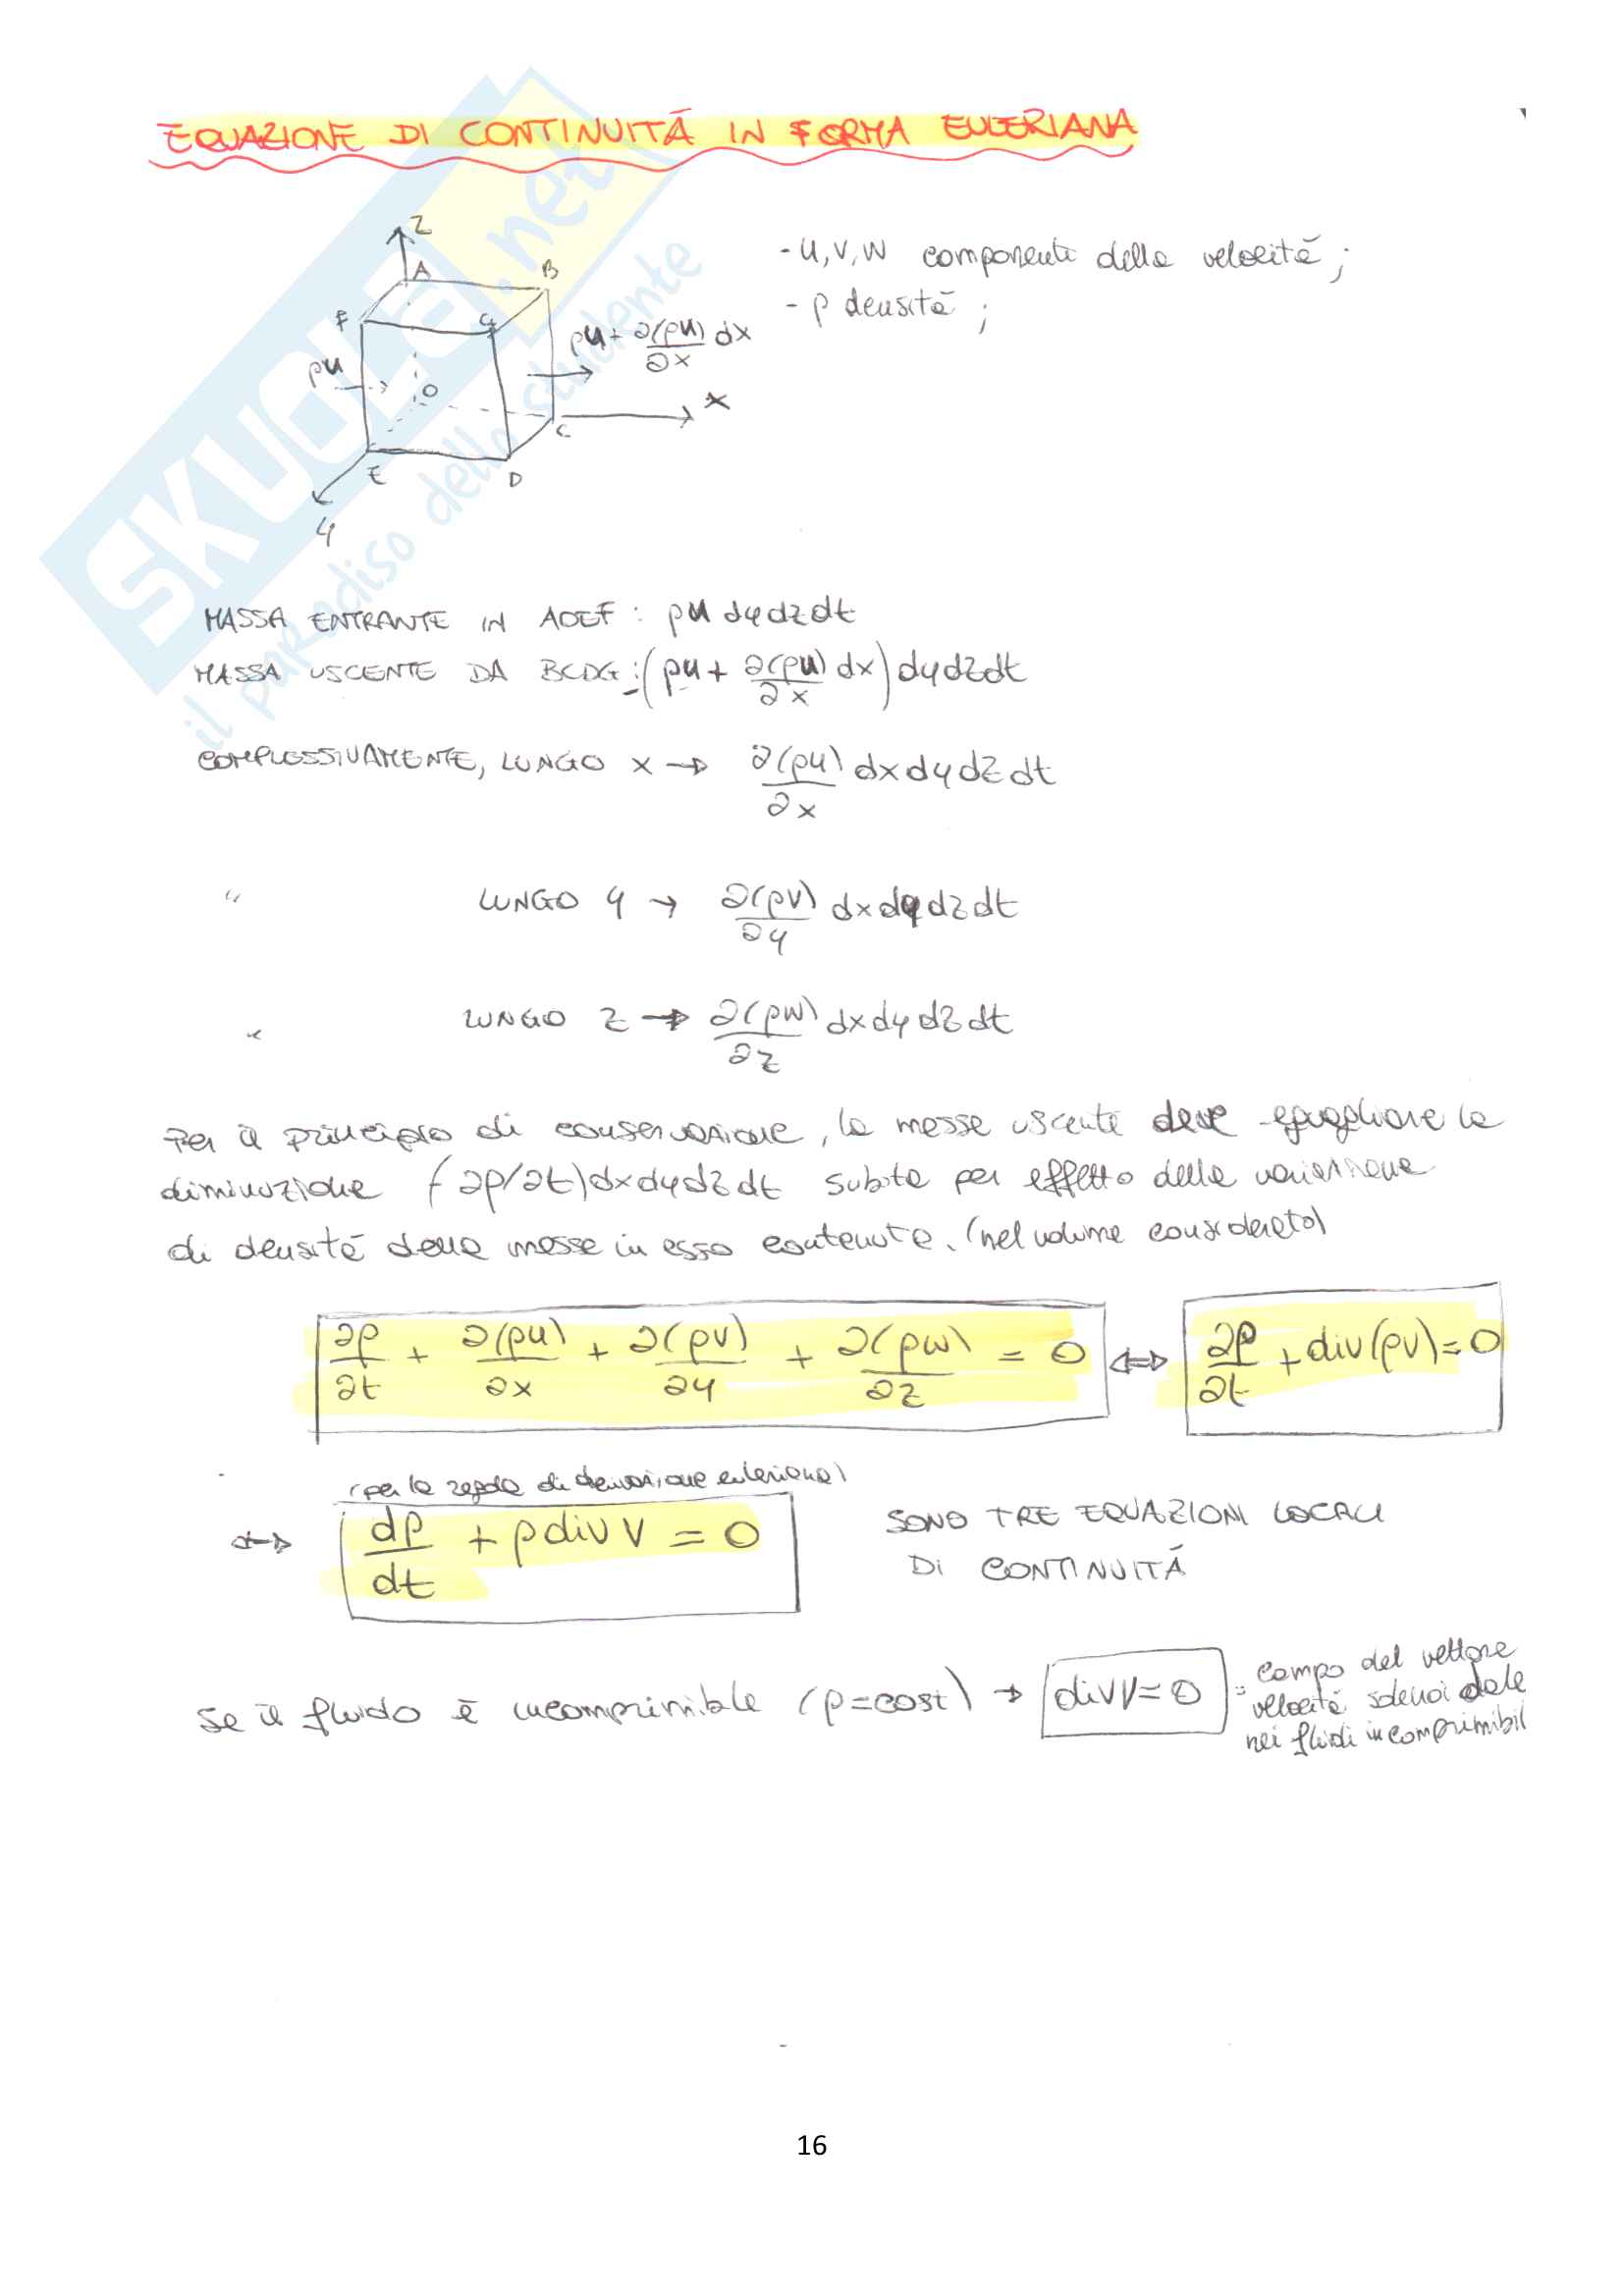 EQUAZIONE DI CONTINUITÁ IN FORMA EULERIANA
SKUOLA.net
il paradiso dello studente
- u, v, w componenti della velocità ;
- ρ densità ;
Z
A
B
F
G
ρu
ρu + ∂(ρu)/∂x dx
O
x
C
E
D
y
MASSA ENTRANTE IN AOEF : ρu dydzdt
MASSA USCENTE DA BCDG : (ρu + ∂(ρu)/∂x dx) dydzdt
COMPLESSIVAMENTE, LUNGO x → ∂(ρu)/∂x dxdydzdt
" LUNGO y → ∂(ρv)/∂y dxdydzdt
" LUNGO z → ∂(ρw)/∂z dxdydzdt
Per il principio di conservazione, la massa uscente deve eguagliare la
diminuzione (-∂ρ/∂t)dxdydzdt subita per effetto della variazione
di densità della massa in esso contenuta. (nel volume considerato)
∂ρ/∂t + ∂(ρu)/∂x + ∂(ρv)/∂y + ∂(ρw)/∂z = 0 ⇔ ∂ρ/∂t + div(ρv) = 0
(per la regola di derivazione euleriana)
⇔ dρ/dt + ρ div V = 0 SONO TRE EQUAZIONI LOCALI
DI CONTINUITÁ
Se il fluido è incomprimibile (ρ=cost) → div V = 0 = campo del vettore
velocità solenoidale
nei fluidi incomprimibil
16